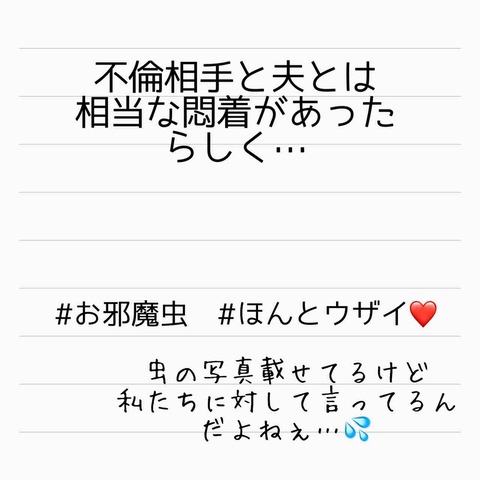 不倫相手と夫とは
相当な悶着があった
らしく…
#お邪魔虫　#ほんとウザイ❤️
虫の写真載せてるけど
私たちに対して言ってるん
だよねぇ…💦